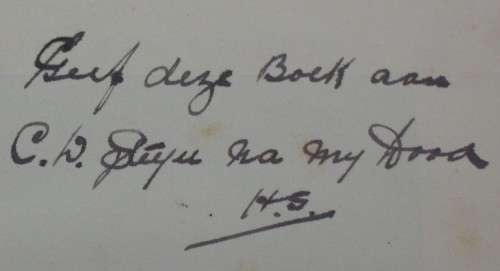 Geef deze Boek aan
C. D. Steyn na my Dood
H.S.